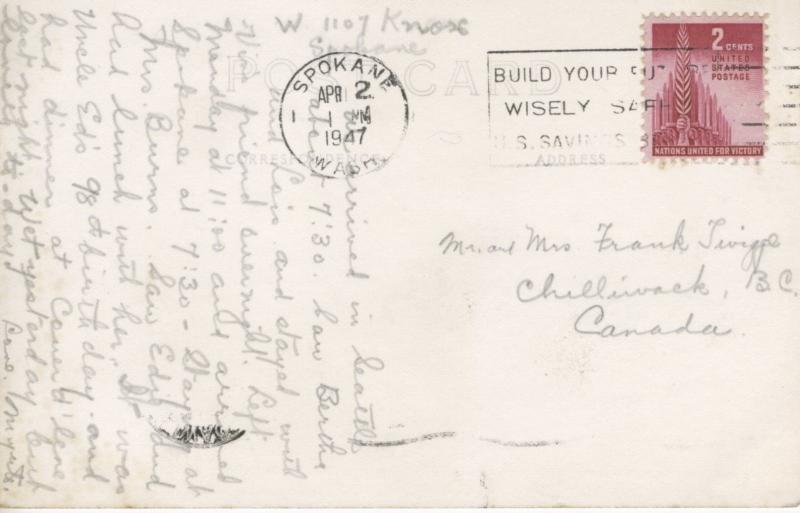 W. 1107 Knox
Spokane
POST CARD
SPOKANE
APR 2
1 PM
1947
WASH.
BUILD YOUR FUTURE
WISELY SAFELY
U.S. SAVINGS BONDS
2 CENTS
UNITED
STATES
POSTAGE
NATIONS UNITED FOR VICTORY
CORRESPONDENCE
ADDRESS
Mr. and Mrs. Frank
Chilliwack, B.C.
Canada.
arrived in Seattle
about 7:30. Saw Bertha
and Lois and stayed with
friend overnight. Left
Monday at 11:00 and arrived
Spokane at 7:30 - Stayed at
Mrs. Burns. Saw Ed and
had lunch with her. It was
Uncle Ed's 98th birthday and
had dinner at Coeur d'lene
last night. Wet yesterday but
to-day. Love, Myrtle.